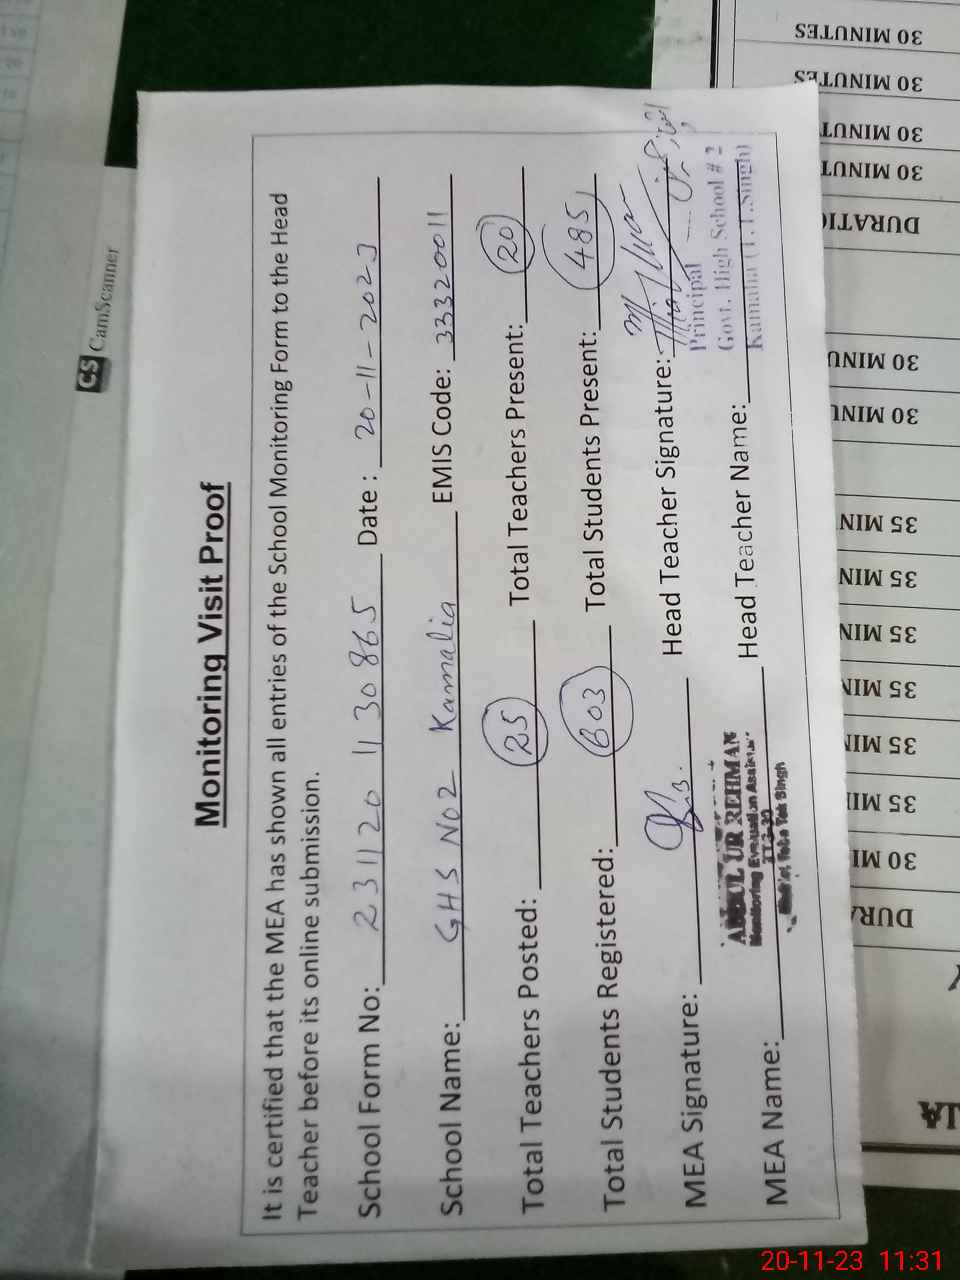 Monitoring Visit Proof
It is certified that the MEA has shown all entries of the School Monitoring Form to the Head
Teacher before its online submission.
School Form No: 231120 1130865 Date : 20-11-2023
School Name: GHS No2 Kamalia EMIS Code: 33320011
Total Teachers Posted: 25 Total Teachers Present: 20
Total Students Registered: 603 Total Students Present: 485
MEA Signature: Head Teacher Signature:
Principal
Govt. High School # 2
Kamalia (T.T.Singh)
MEA Name: Head Teacher Name:
ABDUL UR REHMAN
Monitoring Evaluation Assistant
District Toba Tek Singh
CS CamScanner
30 MINUTES
30 MINUTES
30 MINUT
30 MINUT
DURATIO
30 MINU
30 MINU
35 MIN
35 MIN
35 MIN
35 MIN
35 MIN
35 MI
30 MI
DURA
20-11-23 11:31